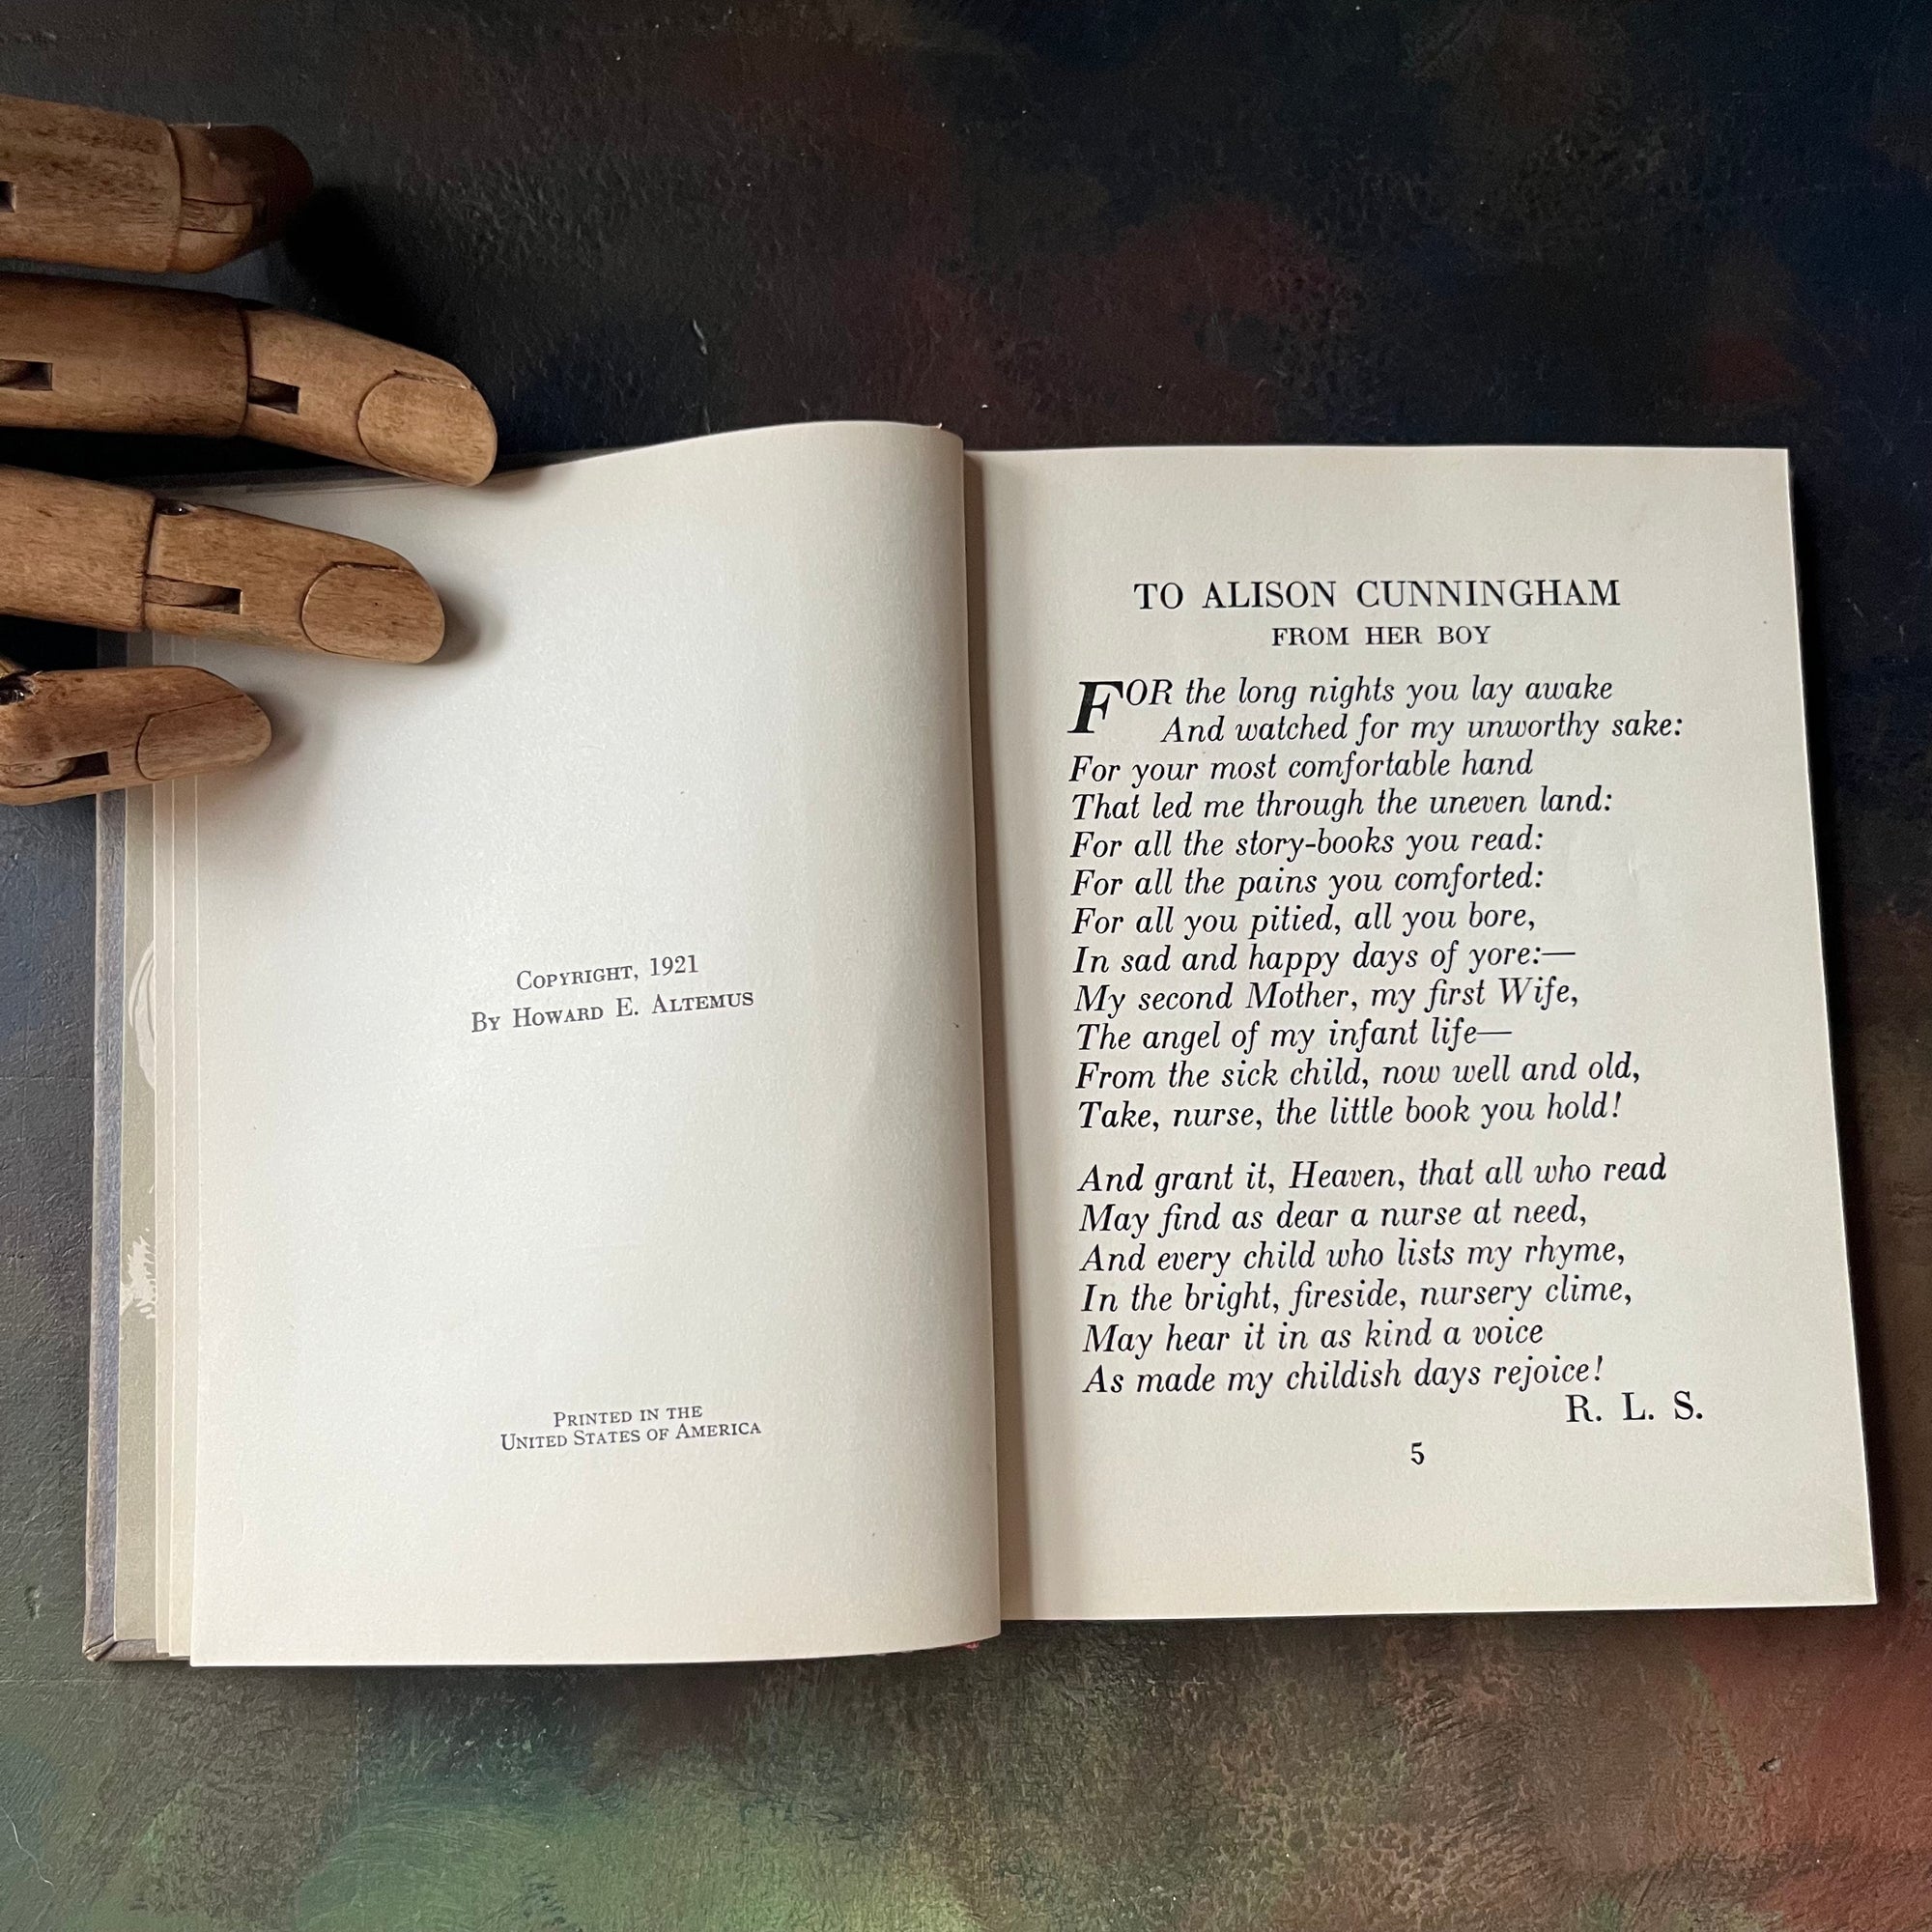 COPYRIGHT, 1921
BY HOWARD E. ALTEMUS
PRINTED IN THE
UNITED STATES OF AMERICA
TO ALISON CUNNINGHAM
FROM HER BOY
FOR the long nights you lay awake
And watched for my unworthy sake:
For your most comfortable hand
That led me through the uneven land:
For all the story-books you read:
For all the pains you comforted:
For all you pitied, all you bore,
In sad and happy days of yore:—
My second Mother, my first Wife,
The angel of my infant life—
From the sick child, now well and old,
Take, nurse, the little book you hold!
And grant it, Heaven, that all who read
May find as dear a nurse at need,
And every child who lists my rhyme,
In the bright, fireside, nursery clime,
May hear it in as kind a voice
As made my childish days rejoice!
R. L. S.
5